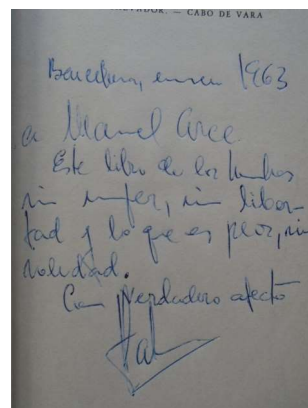 SALVADOR. — CABO DE VARA
Barcelona, enero 1963
a Manuel Arce
Este libro de los hombres
sin mujer, sin liber-
tad y lo que es peor, sin
soledad.
Con verdadero afecto